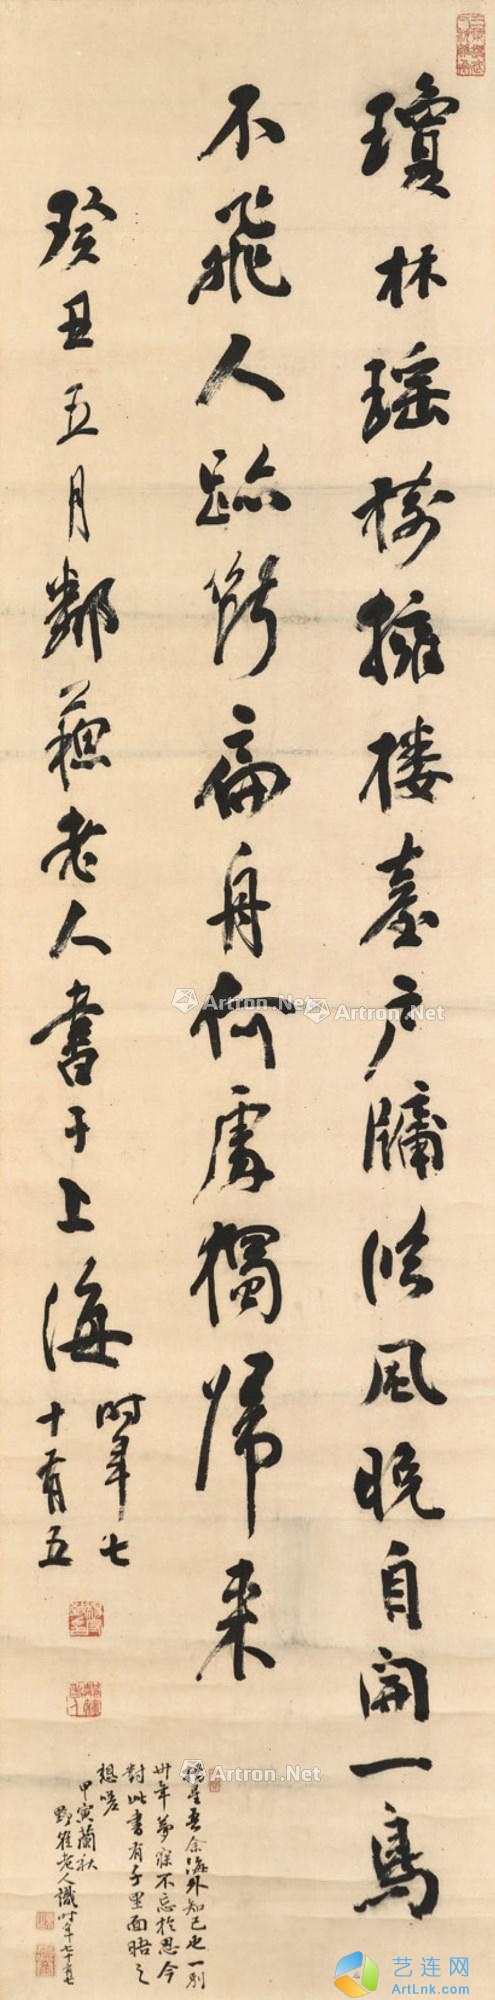 瓊林瑤樹擁樓臺戶牖臨風晚自開一鳥
不飛人跡斷扁舟何處獨歸来
癸丑五月鄰蘇老人書于上海
時年七
十有五
楊星吾余海外知己也一別
卅年夢寐不忘於思今
對此書有千里面晤之
想嗟
甲寅蘭秋
野雀老人識時年七十有七
Artron.Net
Artron.Net
艺连网
ArtLnk.com